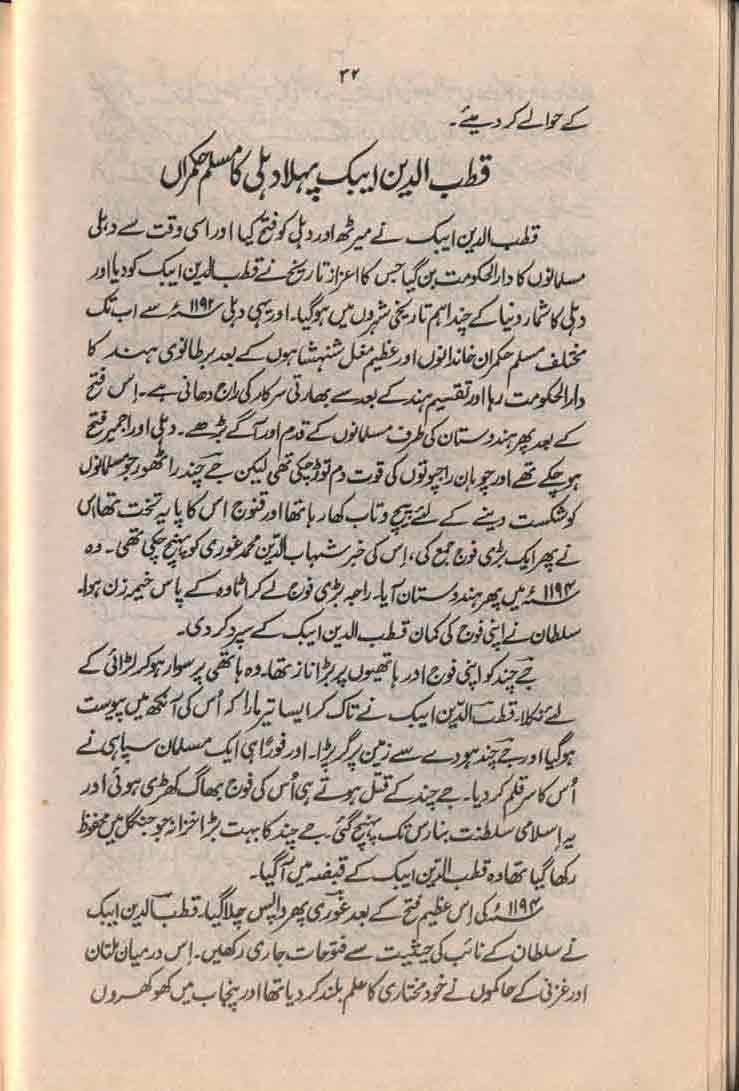 ۳۲
کے حوالے کر دیئے۔
قطب الدین ایبک پہلا دہلی کا مسلم حکمراں
قطب الدین ایبک نے میرٹھ اور دہلی کو فتح کیا اور اسی وقت سے دہلی
مسلمانوں کا دارالحکومت بن گیا جس کا اعزاز تاریخ نے قطب الدین ایبک کو دیا اور
دہلی کا شمار دنیا کے چند اہم تاریخی شہروں میں ہو گیا۔ اور یہی دہلی ۱۱۹۲ء سے اب تک
مختلف مسلم حکمران خاندانوں اور عظیم مغل شنہشاہوں کے بعد برطانوی ہند کا
دارالحکومت رہا اور تقسیم ہند کے بعد سے بھارتی سرکار کی راج دھانی ہے۔ اس فتح
کے بعد پھر ہندوستان کی طرف مسلمانوں کے قدم اور آگے بڑھے۔ دہلی اور اجمیر فتح
ہو چکے تھے اور چوہان راجپوتوں کی قوت دم توڑ چکی تھی لیکن جے چند راٹھور جو مسلمانوں
کو شکست دینے کے لئے پیچ و تاب کھا رہا تھا اور قنوج اس کا پایہ تخت تھا اس
نے پھر ایک بڑی فوج جمع کی، اس کی خبر شہاب الدین محمد غوری کو پہنچ چکی تھی۔ وہ
۱۱۹۴ء میں پھر ہندوستان آیا۔ راجہ بڑی فوج لے کر اٹاوہ کے پاس خیمہ زن ہوا۔
سلطان نے اپنی فوج کی کمان قطب الدین ایبک کے سپرد کر دی۔
جے چند کو اپنی فوج اور ہاتھیوں پر بڑا ناز تھا۔ وہ ہاتھی پر سوار ہو کر لڑائی کے
لئے نکلا۔ قطب الدین ایبک نے تاک کر ایسا تیر مارا کہ اُس کی آنکھ میں پیوست
ہو گیا اور جے چند ہودے سے زمین پر گر پڑا۔ اور فوراً ہی ایک مسلمان سپاہی نے
اُس کا سر قلم کر دیا۔ جے چند کے قتل ہوتے ہی اُس کی فوج بھاگ کھڑی ہوئی اور
یہ اسلامی سلطنت بنارس تک پہنچ گئی۔ جے چند کا بہت بڑا خزانہ جو جنگل میں محفوظ
رکھا گیا تھا وہ قطب الدین ایبک کے قبضہ میں آ گیا۔
۱۱۹۴ء کی اس عظیم فتح کے بعد غوری پھر واپس چلا گیا۔ قطب الدین ایبک
نے سلطان کے نائب کی حیثیت سے فتوحات جاری رکھیں۔ اس درمیان ملتان
اور غزنی کے حاکموں نے خود مختاری کا علم بلند کر دیا تھا اور پنجاب میں کھوکھروں